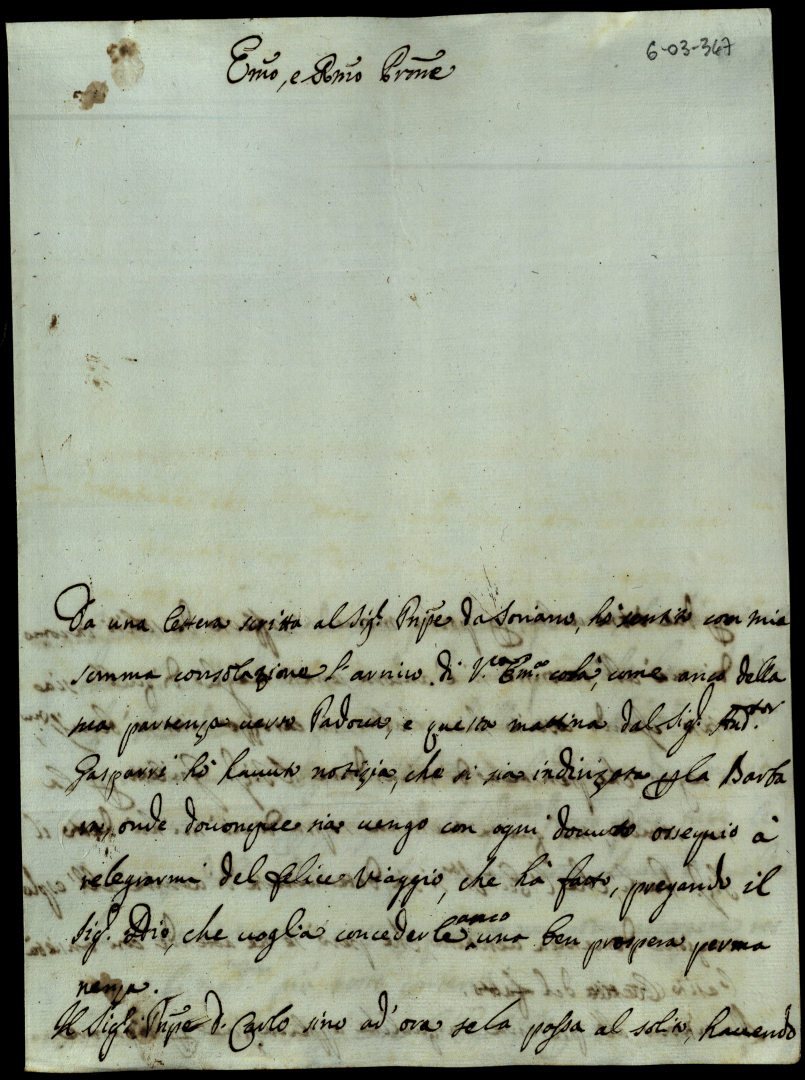 6-03-347
Em̃o, e Rm̃o Prñe
Da una lettera scritta al Sig.r Prñpe da Soriano, hò sentito con mia
somma consolazione l'arrivo di V.ra Em.a colà, come anco della
sua partenza verso Padova, e questa mattina dal Sig.r Aud.tor
Gasparri hò havuto notizia, che si sia indirizzata p la Barba
onde dovonque sia vengo con ogni dovuto ossequio à
relegrarmi del felice Viaggio, che hà fatto, pregando il
Sig.r Iddio, che voglia concederle anco una ben prospera perma
nenza.
Il Sig.r Prñpe D. Carlo sino ad' ora se la passa al solito, havendo